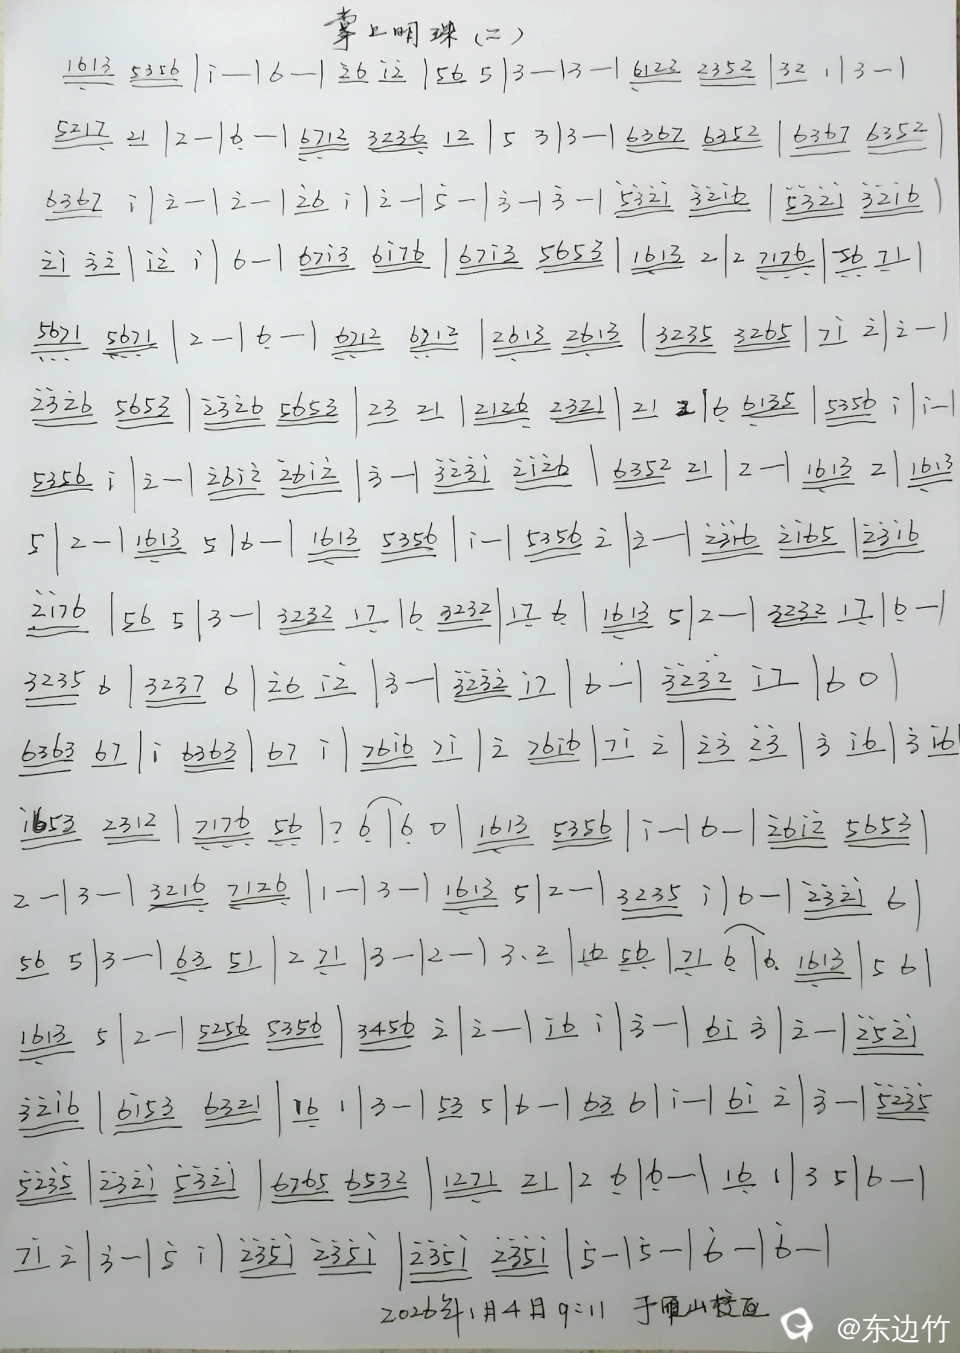 掌上明珠(二)
1613 5356 | i — | 6 — | 26 i2 | 56 5 | 3 — | 3 — | 6123 2352 | 32 1 | 3 — |
5217 21 | 2 — | 6 — | 6712 3236 12 | 5 3 | 3 — | 6367 6352 | 6367 6352 |
6367 i | 2 — | 2 — | 26 i | 2 — | 5 — | 3 — | 3 — | 5321 3216 | 5321 3216 |
2i 32 | i2 i | 6 — | 67i3 6i76 | 67i3 5653 | 1613 2 | 2 7176 | 56 71 |
5671 5671 | 2 — | 6 — | 6712 6712 | 2613 2613 | 3235 3265 | 7i 2 | 2 — |
2326 5653 | 2326 5653 | 23 21 | 2126 2321 | 21 2 | 6 6135 | 5356 i | i — |
5356 i | 2 — | 26i2 26i2 | 3 — | 323i 2i26 | 6352 21 | 2 — | 1613 2 | 1613
5 | 2 — | 1613 5 | 6 — | 1613 5356 | i — | 5356 2 | 2 — | 2316 2165 | 2316
2i76 | 56 5 | 3 — | 3232 17 | 6 3232 | 17 6 | 1613 5 | 2 — | 3232 17 | 6 — |
3235 6 | 3237 6 | 26 i2 | 3 — | 3232 i7 | 6 — | 3232 i7 | 6 0 |
6363 67 | i 6363 | 67 i | 76i6 7i | 2 76i6 | 7i 2 | 23 23 | 3 i6 | 3 i6
i653 2312 | 7176 56 | 7 6 | 6 0 | 1613 5356 | i — | 6 — | 26i2 5653 |
2 — | 3 — | 3216 7126 | 1 — | 3 — | 1613 5 | 2 — | 3235 i | 6 — | 232i 6 |
56 5 | 3 — | 63 51 | 2 71 | 3 — | 2 — | 3. 2 | 16 56 | 71 6 | 6. 1613 | 5 6 |
1613 5 | 2 — | 5256 5356 | 3456 2 | 2 — | i6 i | 3 — | 6i 3 | 2 — | 252i
3216 | 6i53 6321 | 16 1 | 3 — | 53 5 | 6 — | 63 6 | i — | 6i 2 | 3 — | 5235
5235 | 232i 532i | 6765 6532 | 1271 21 | 2 6 | 6 — | 16 1 | 3 5 | 6 — |
7i 2 | 3 — | 5 i | 235i 235i | 235i 235i | 5 — | 5 — | 6 — | 6 — |
2026年1月4日9:11 于雁山校区
@东边竹